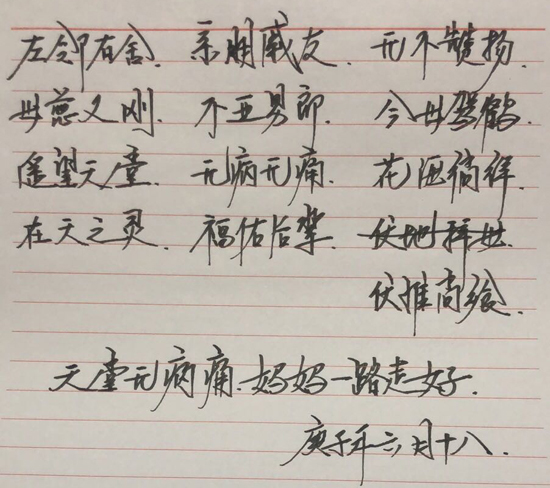 左邻右舍. 亲朋戚友. 无不赞扬.
母慈又刚. 不亚男郎. 今母驾鹤.
遥望天堂. 无病无痛. 花海徜徉.
在天之灵. 福佑后辈. 伏地拜母.
伏惟尚飨.
天堂无病痛.妈妈一路走好.
庚子年六月十八.